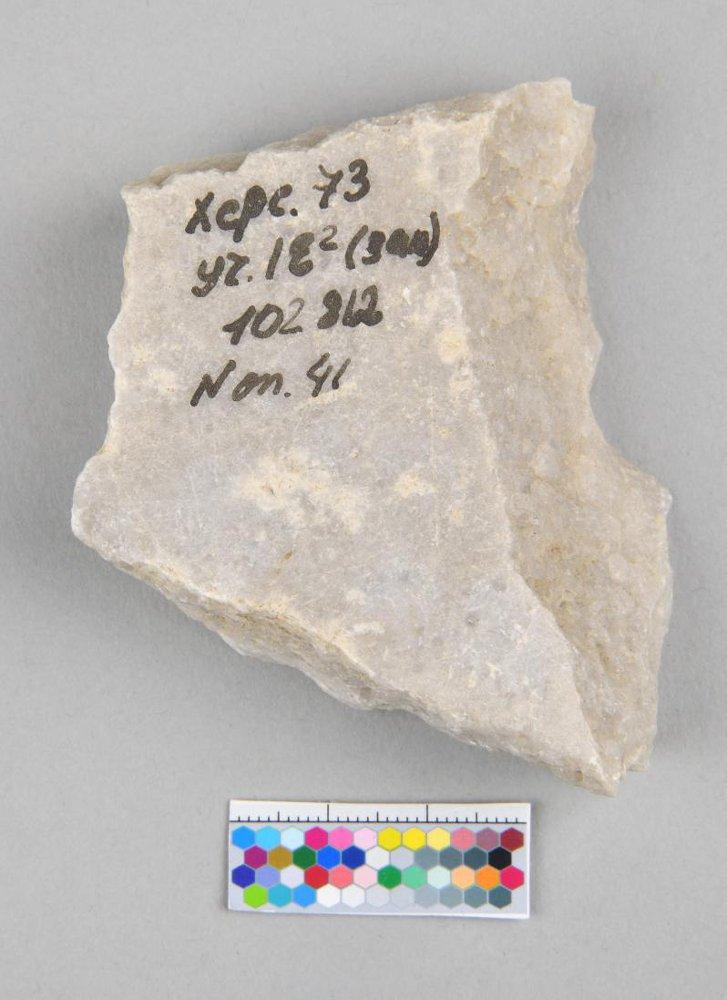 Херс. 73
уч. 1 Е² (зап)
102 812
N оп. 41